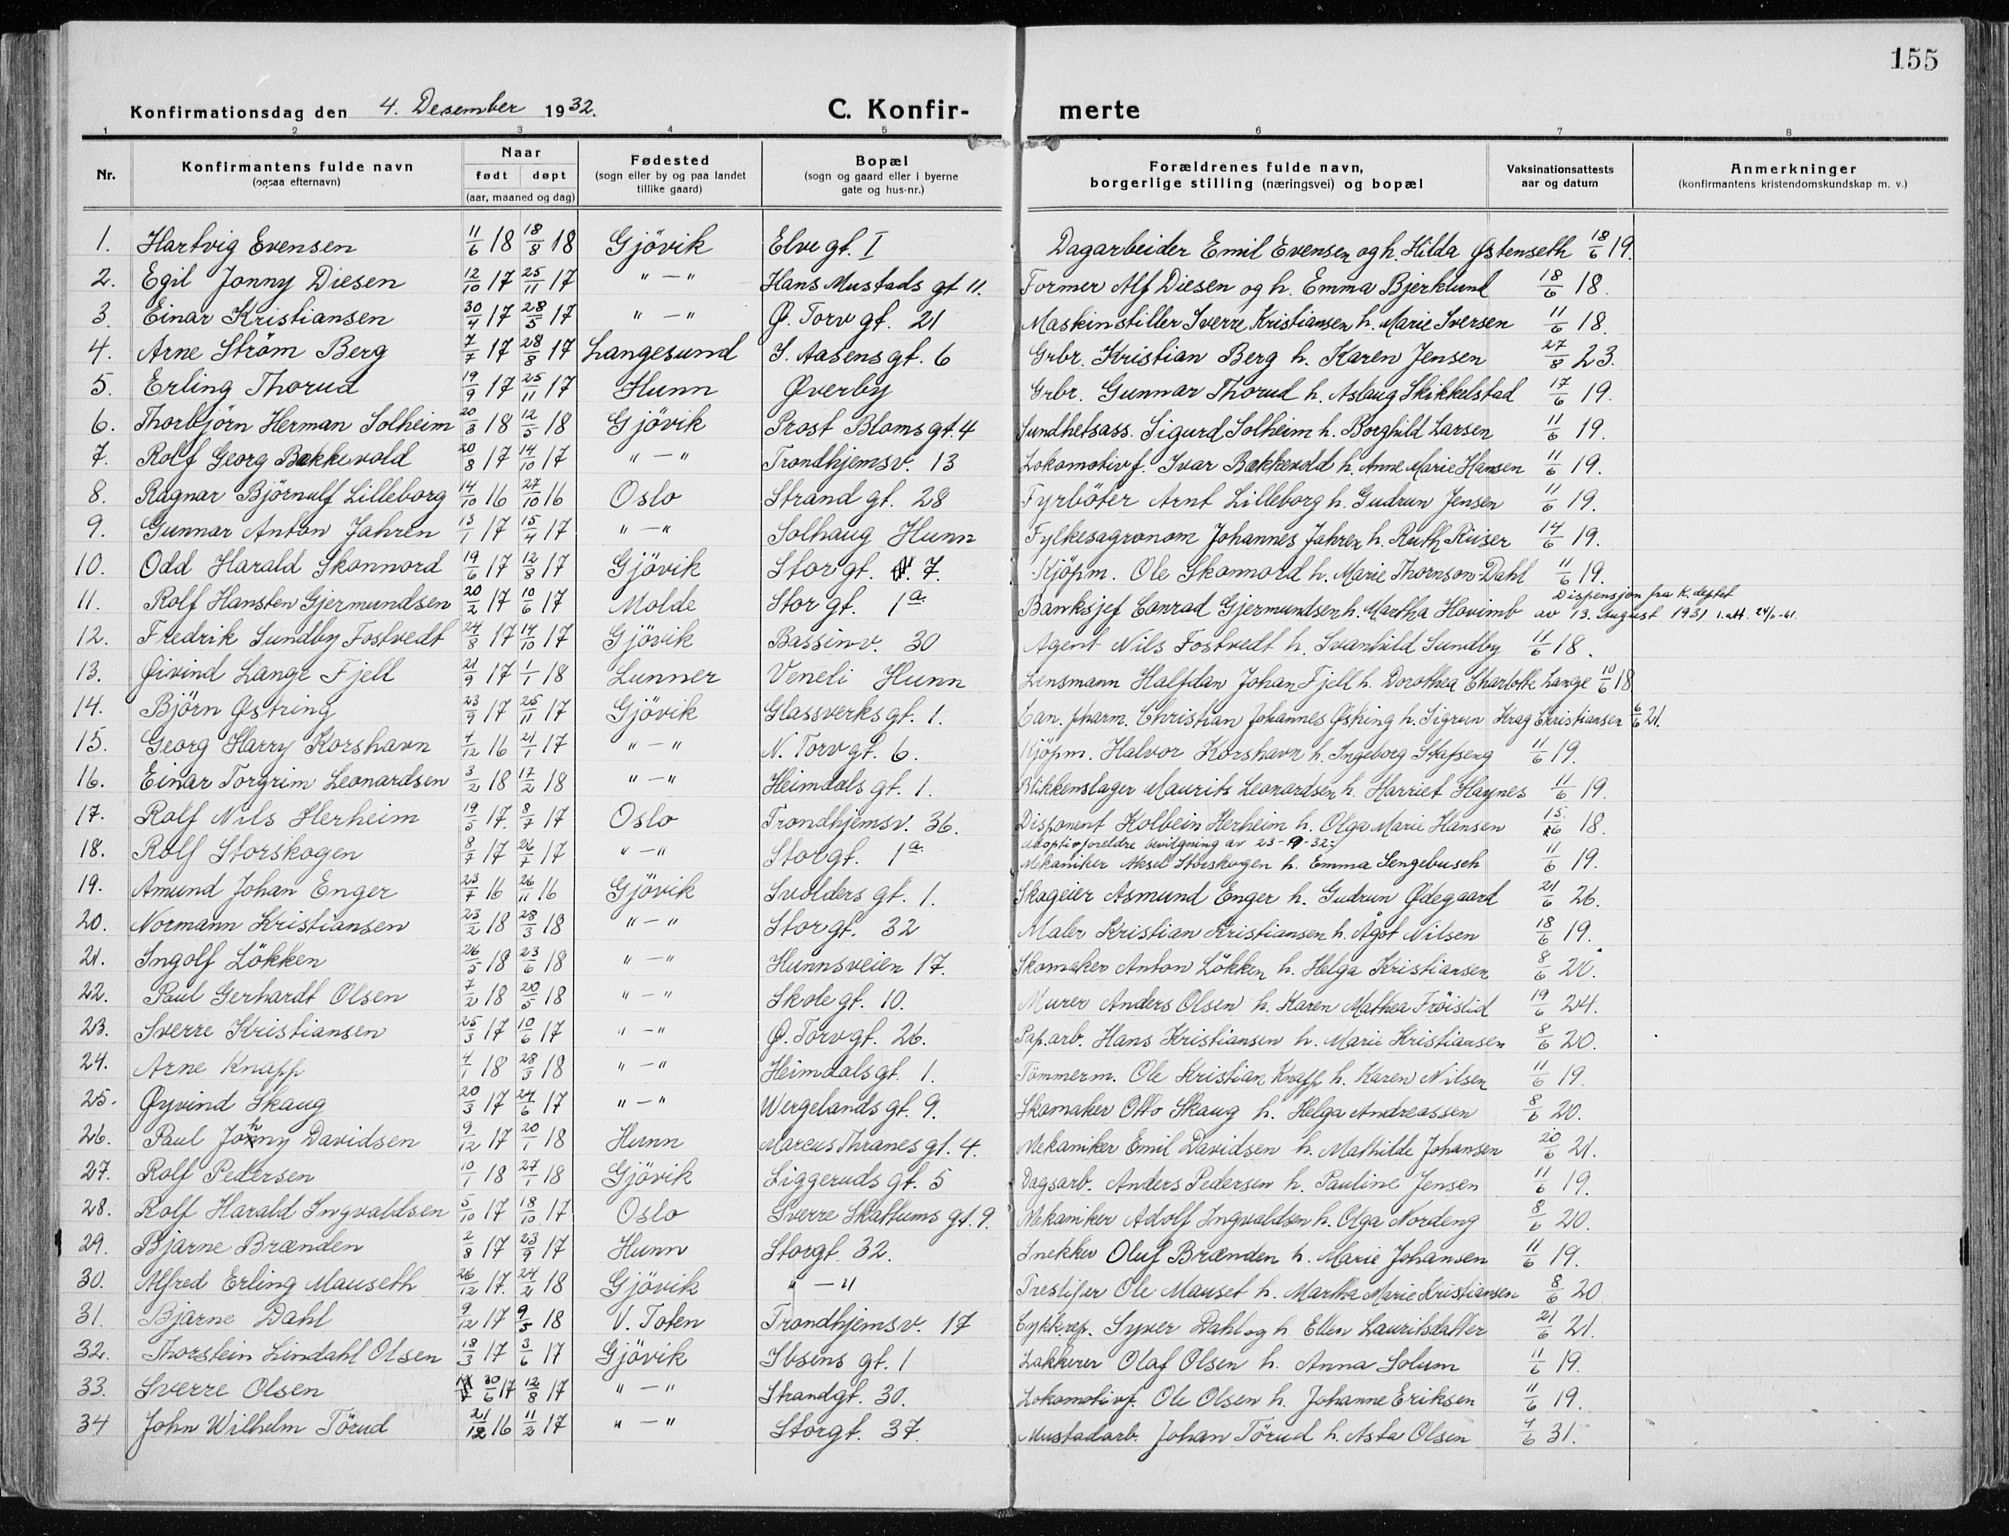 155
Konfirmationsdag den 4. Desember 1932. C. Konfirmerte
1 2 3 4 5 6 7 8
Nr. Konfirmantens fulde navn (ogsaa efternavn) Naar født døpt (aar, maaned og dag) Fødested (sogn eller by og paa landet tillike gaard) Bopæl (sogn og gaard eller i byerne gate og hus-nr.) Forældrenes fulde navn, borgerlige stilling (næringsvei) og bopæl Vaksinationsattests aar og datum Anmerkninger (konfirmantens kristendomskundskap m. v.)
1. Hartvig Evensen 11/6 18 18/8 18 Gjövik Elve gt. I Dagarbeider Emil Evensen og h. Hilda Østenseth 18/6 19.
2. Egil Jonny Diesen 12/10 17 25/11 17 " — " Hans Mustads gt 11. Former Alf Diesen og h. Emma Bjerklund 18/6 18.
3. Einar Kristiansen 30/4 17 28/5 17 " — " Ø. Torv gt. 21 Maskinstiller Sverre Kristiansen h. Marie Iversen 11/6 18.
4. Arne Ström Berg 7/7 17 28/8 17 Langesund I. Aasens gt. 6 Grbr. Kristian Berg h. Karen Jensen 27/8 23.
5. Erling Thorud 19/9 17 25/11 17 Hunn Øverby Grbr. Gunnar Thorud h. Aslaug Skikkelstad 17/6 19.
6. Thorbjörn Herman Solheim 20/3 18 12/5 18 Gjövik Prost Bloms gt. 4 Sundhetsass. Sigurd Solheim h. Borghild Larsen 11/6 19.
7. Rolf Georg Bakkevold 20/8 17 14/10 17 " — " Trondhjemsv. 13 Lokomotivf. Ivar Bakkevold h. Anne Marie Hansen 11/6 19.
8. Ragnar Björnulf Lilleborg 14/10 16 27/10 16 Oslo Strand gt. 28 Fyrböter Arnt Lilleborg h. Gudrun Jensen 11/6 19.
9. Gunnar Anton Jahren 13/1 17 15/4 17 " — " Solhaug Hunn Fylkesagronom Johannes Jahren h. Ruth Riiser 14/6 19.
10. Odd Harald Skonnord 19/6 17 12/8 17 Gjövik Stor gt. 7. Kjöpm. Ole Skonnord h. Marie Thornson-Dahl 11/6 19.
11. Rolf Hansten Gjermundsen 20/2 17 10/6 17 Molde Stor gt. 1a. Banksjef Conrad Gjermundsen h. Martha Hovimb Dispensjon fra K. deptet av 13. August 1931 1. att. 24/11-61.
12. Fredrik Sundby Fostvedt 24/8 17 14/10 17 Gjövik Bassinv. 30 Agent Nils Fostvedt h. Svanhild Sundby 11/6 18.
13. Øivind Lange Fjell 21/9 17 1/1 18 Lunner Veneli Hunn Lensmann Halfdan Johan Fjell h. Dorothea Charlotte Lange 10/6 18
14. Björn Østring 23/9 17 25/11 17 Gjövik Glassverks gt. 1. Can. pharm. Christian Johannes Østring h. Sigrun Krag Christiansen 6/6 21.
15. Georg Harry Korshavn 4/12 16 21/1 17 " — " N. Torv gt. 6. Kjöpm. Halvor Korshavn h. Ingeborg Stafseng 11/6 19.
16. Einar Torgrim Leonardsen 3/2 18 17/2 18 " — " Heimdals gt. 1. Blikkenslager Maurits Leonardsen h. Harriet Haynes 11/6 19.
17. Rolf Nils Herheim 19/5 17. 8/7 17 Oslo Trondhjemsv. 36. Disponent Kolbein Herheim h. Olga Marie Hansen 15/6 18.
18. Rolf Storskogen 8/7 17 26/7 17 " — " Storgt. 1a. adoptivforeldre bevilgning av 23-9-32: Mekaniker Aksel Storskogen h. Emma Sengebusch 11/6 19.
19. Amund Johan Enger 23/7 16 26/11 16 Gjövik Svolders gt. 1. Skogeier Asmund Enger h. Gudrun Ødegaard 21/6 26.
20. Normann Kristiansen 23/2 18 28/3 18 " — " Storgt. 32 Maler Kristian Kristiansen h. Ågot Nilsen 18/6 19.
21. Ingolf Lökken 26/5 18 23/6 18 " — " Hunnsveien 17. Skomaker Anton Lökken h. Helga Kristiansen 8/6 20.
22. Paul Gerhardt Olsen 7/2 18 20/5 18 " — " Skole gt. 10. Murer Anders Olsen h. Karen Mathea Fröislid 19/6 24.
23. Sverre Kristiansen 25/3 17 10/6 17 " — " Ø. Torvgt. 26. Pap.arb. Hans Kristiansen h. Marie Kristiansen 8/6 20.
24. Arne Knapp 4/1 18 28/3 18 " — " Heimdalsgt. 1. Tömmerm. Ole Kristian Knapp h. Karen Nilsen 11/6 19.
25. Øyvind Skaug 20/3 17 24/6 17 " — " Wergelands gt. 9. Skomaker Otto Skaug h. Helga Andreassen 8/6 20.
26. Paul Johnny Davidsen 9/12 17 20/1 18 Hunn Marcus Thranes gt. 4. Mekaniker Emil Davidsen h. Mathilde Johansen 20/6 21.
27. Rolf Pedersen 10/1 18 27/1 18 Gjövik Liggeruds gt. 5 Dagsarb. Anders Pedersen h. Pauline Jensen 11/6 19.
28. Rolf Harald Ingvaldsen 5/10 17 18/10 17 Oslo Sverre Skattums gt. 9. Mekaniker Adolf Ingvaldsen h. Olga Nordeng 8/6 20.
29. Bjarne Brænden 2/8 17 23/9 17 Hunn Storgt. 32. Snekker Oluf Brænden h. Marie Johansen 11/6 19.
30. Alfred Erling Mauseth 26/12 17. 24/2 18 Gjövik " — " Tresliper Ole Mauset h. Martha Marie Kristiansen 8/6 20
31. Bjarne Dahl 9/12 17 9/5 18 V. Toten Trondhjemsv. 17 Cykkrep. Syver Dahl og h. Ellen Lauritsdatter 21/6 21.
32. Thorstein Lindahl Olsen 18/3 17 3/6 17 Gjövik Ibsens gt. 1 Lakkerer Olaf Olsen h. Anna Solum 11/6 19.
33. Sverre Olsen 30/6 17 12/8 17 " — " Strandgt. 30. Lokomotivf. Ole Olsen h. Johanne Eriksen 11/6 19.
34 John Wilhelm Törud 21/12 16 11/2 17 " — " Storgt. 37. Mustadarb. Johan Törud h. Asta Olsen 4/6 31.